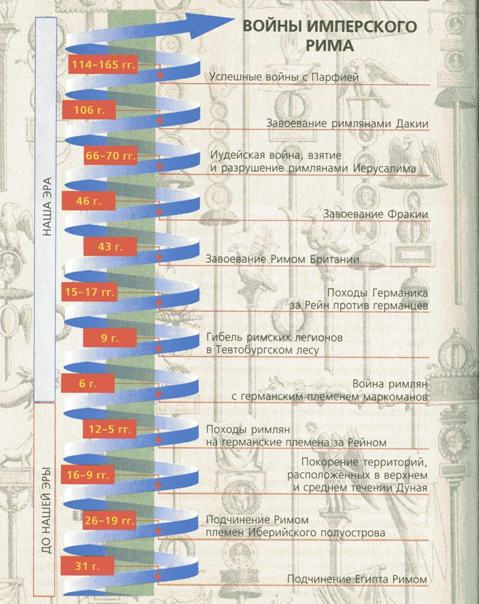 ВОЙНЫ ИМПЕРСКОГО
РИМА
114–165 гг.
Успешные войны с Парфией
106 г.
Завоевание римлянами Дакии
66–70 гг.
Иудейская война, взятие
и разрушение римлянами Иерусалима
46 г.
Завоевание Фракии
43 г.
Завоевание Римом Британии
15–17 гг.
Походы Германика
за Рейн против германцев
9 г.
Гибель римских легионов
в Тевтобургском лесу
6 г.
Война римлян
с германским племенем маркоманов
НАША ЭРА
12–5 гг.
Походы римлян
на германские племена за Рейном
16–9 гг.
Покорение территорий,
расположенных в верхнем
и среднем течении Дуная
26–19 гг.
Подчинение Римом
племен Иберийского полуострова
31 г.
Подчинение Египта Римом
ДО НАШЕЙ ЭРЫ